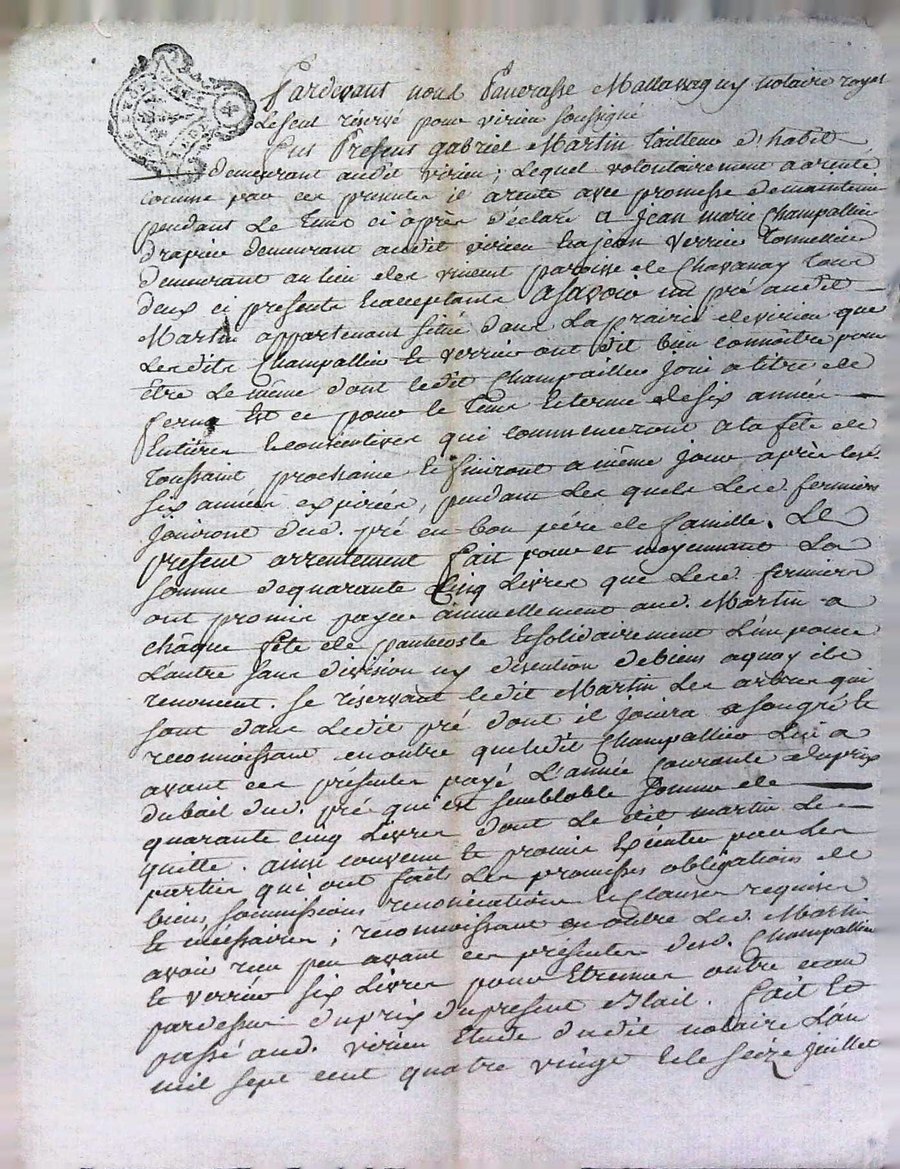 Pardevant nous Pancrasse Mallassagny notaire royal
Le seul réservé pour virieu soussigné
fut Présent gabriel Martin Tailleur d'habit
demeurant audit virieu ; Lequel volontairement a arenté
comme par ces presentes il arente avec promesse de maintenir
pendant Le Tems ci après déclaré a jean marie Champallier
drapier demeurant audit virieu & a jean verrier Tonnellier
demeurant au lieu de paroisse de Chavanay Tous
deux ci presents & acceptants asavoir un pré audit
Martin appartenant situé dans La prairie de virieu que
Lesdits Champallier & verrier ont dit bien connoitre pour
être Le même dont ledit Champallier Joui a titre de
ferme Et ce pour le Tems & terme de six années
Entières & consécutives qui commenceront a la fête de
Toussaint prochaine & finiront a même jour après les
six années expirées, pendant Les quels Lesd. fermiers
Jouiront dud. pré en bon père de famille. Le
present arrentement fait pour et moyennant La
somme de quarante Cinq Livres que Lesd. fermiers
ont promis payer annuellement aud. Martin a
châque fête de pantecoste & solidairement L'un pour
L'autre sans division ny discution de biens a quoy ils
renoncent. se réservant ledit Martin Les arbres qui
sont dans Ledit pré dont il Jouira a son gré &
reconnoissant en outre que ledit Champallier Lui a
avant ces presentes payé L'année courante du prix
du bail dud. pré qui est semblable somme de
quarante cinq Livres dont Le dit martin Le
quitte. ainsi convenu & promis Exécuter par Les
parties qui ont faits Les promesses obligations de
biens soumissions renonciations & Clauses requises
& nécéssaires ; reconnoissant en outre Led. Martin
avoir reçu peu avant ces présentes desd. Champallier
& verrier six Livres pour Etrennes outre &
pardessus du prix du present Bail. fait &
passé aud. virieu Etude dudit notaire L'an
mil sept cent quatre vingt & le seize juillet